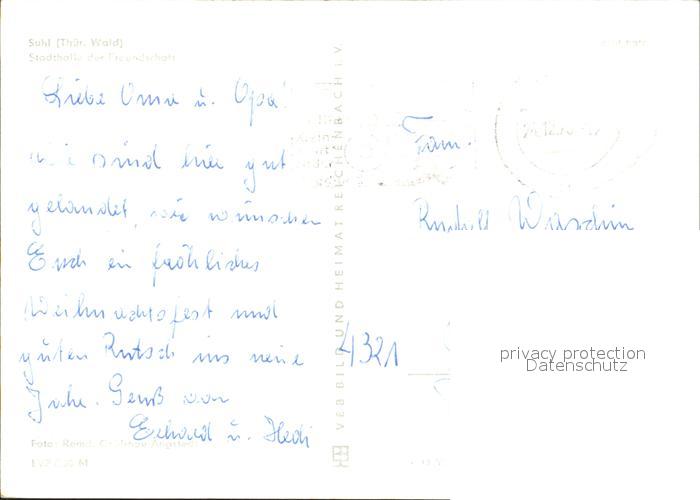 Suhl (Thür. Wald)
Stadthalle der Freundschaft
Liebe Oma u. Opa!
wir sind hier gut
gelandet, wir wünschen
Euch ein fröhliches
Weihnachtsfest und
guten Rutsch ins neue
Jahr. Gruß von
Erhard u. Hedi
Foto: Remd,
VEB BILD UND HEIMAT REICHENBACH I. V.
Fam.
Rudolf
4321
privacy protection
Datenschutz